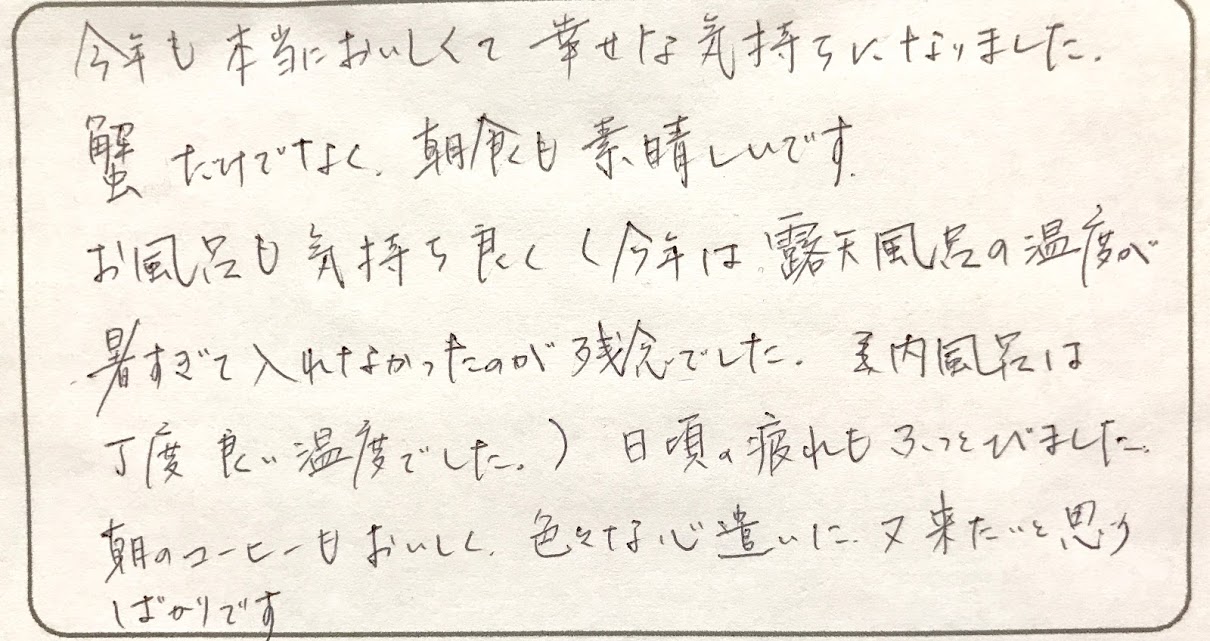 今年も本当においしくて幸せな気持ちになりました。
蟹だけでなく、朝食も素晴しいです。
お風呂も気持ち良く(今年は露天風呂の温度が
暑すぎて入れなかったのが残念でした。室内風呂は
丁度良い温度でした。) 日頃の疲れもふっとびました。
朝のコーヒーもおいしく、色々な心遣いに、又来たいと思う
ばかりです